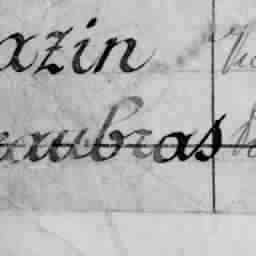 azin
eaubras